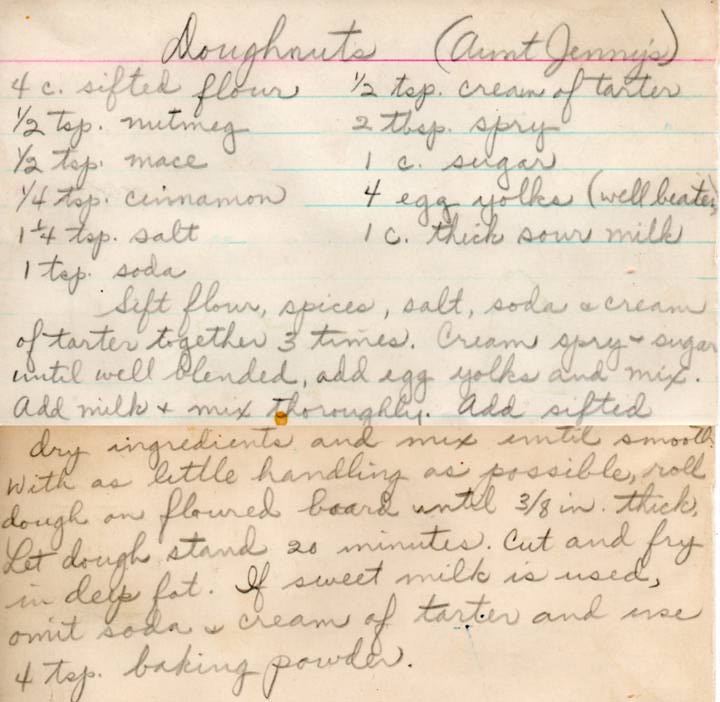 Doughnuts (Aunt Jenny's)
4 c. sifted flour 1/2 tsp. cream of tarter
1/2 tsp. nutmeg 2 tbsp. spry
1/2 tsp. mace 1 c. sugar
1/4 tsp. cinnamon 4 egg yolks (well beaten)
1 1/4 tsp. salt 1 c. thick sour milk
1 tsp. soda
Sift flour, spices, salt, soda & cream
of tarter together 3 times. Cream spry & sugar
until well blended, add egg yolks and mix.
Add milk & mix thoroughly. Add sifted
dry ingredients and mix until smooth.
With as little handling as possible, roll
dough on floured board until 3/8 in. thick.
Let dough stand 20 minutes. Cut and fry
in deep fat. If sweet milk is used,
omit soda & cream of tarter and use
4 tsp. baking powder.